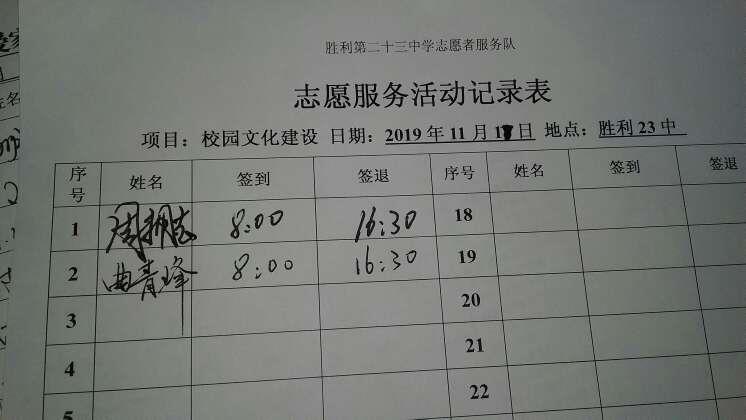 胜利第二十三中学志愿者服务队
志愿服务活动记录表
项目：校园文化建设 日期：2019年11月1日 地点：胜利23中
序号 姓名 签到 签退 序号 姓名 签到 签退
1 8:00 16:30 18
2 曲青峰 8:00 16:30 19
3 20
4 21
5 22
姓名